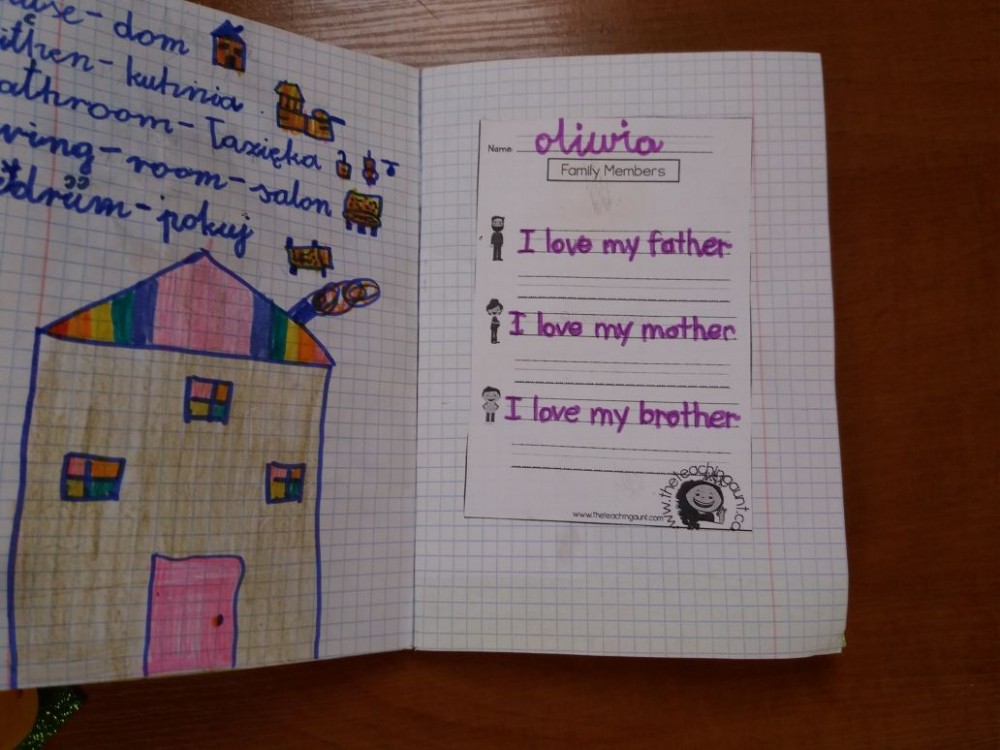 use - dom
itken - kuhnia
athroom - łazięka
ving-room - salon
drüm - pokuj
Name: oliwia
Family Members
I love my father
I love my mother
I love my brother
www.theteachingaunt.com
www.theteachingaunt.co